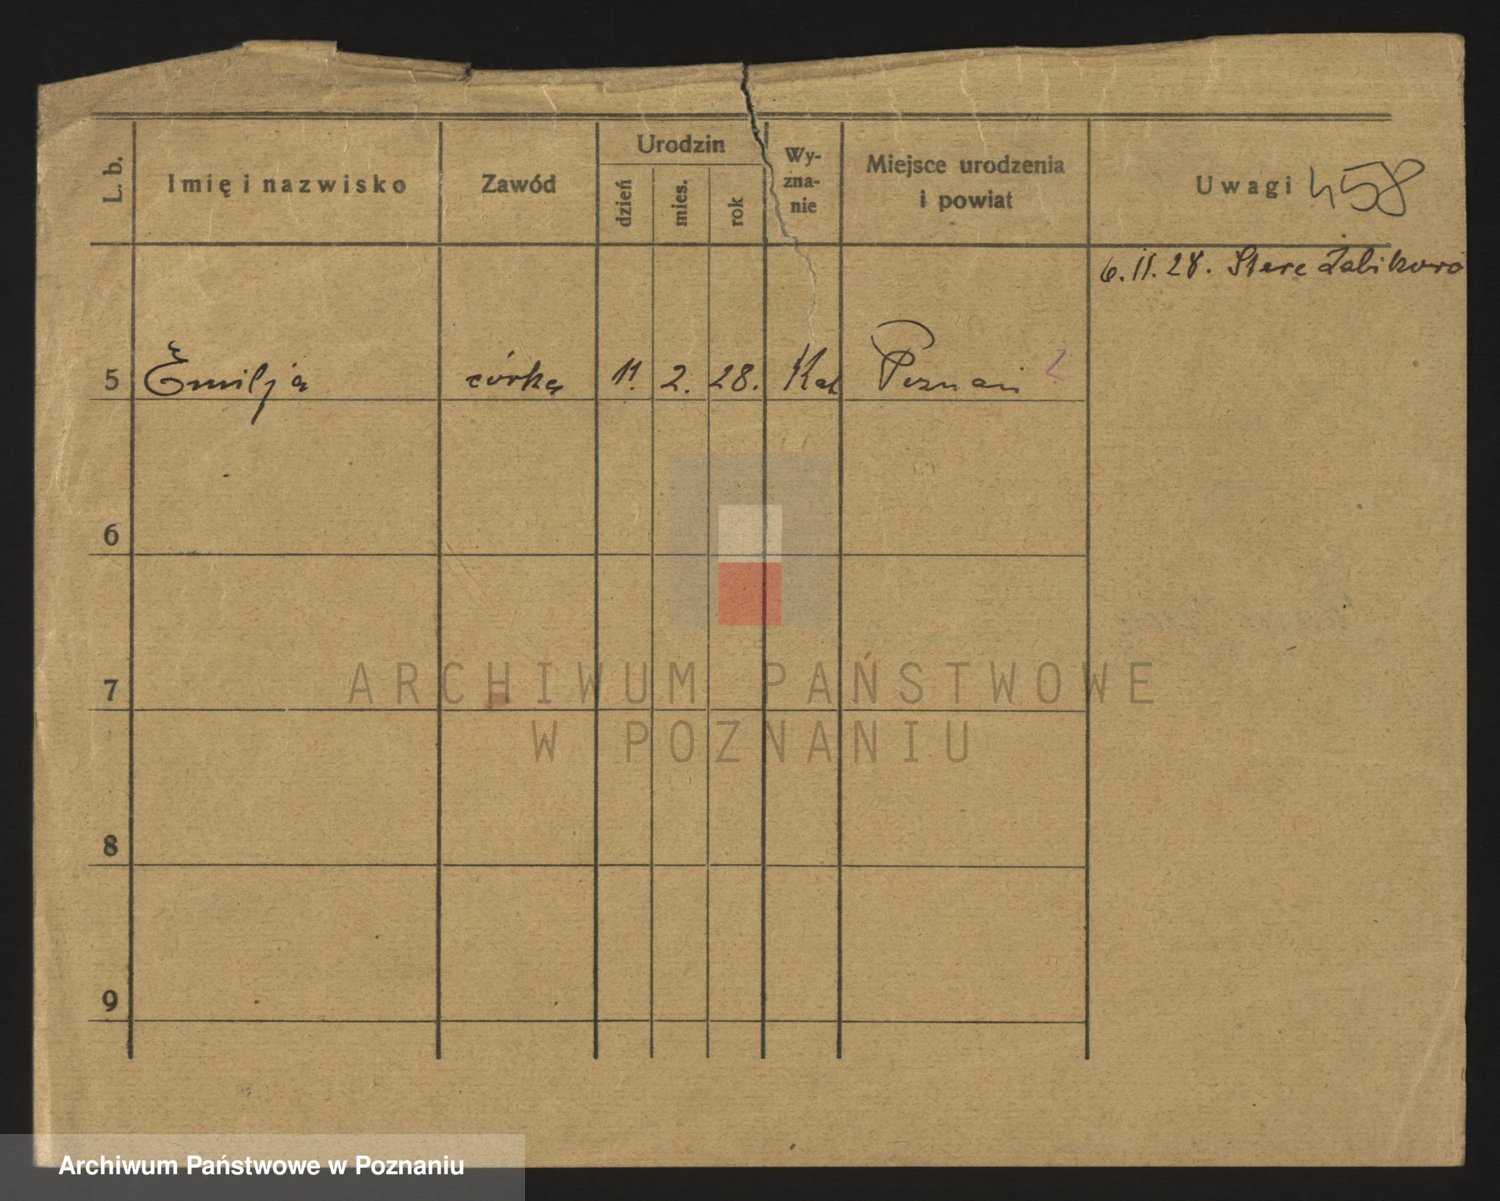 L. b.
Imię i nazwisko
Zawód
Urodzin
dzień
mies.
rok
Wy-
zna-
nie
Miejsce urodzenia
i powiat
Uwagi 458
6. 11. 28. Stare Żabikowo
5 Emilja córka 11. 2. 28. Kat Poznań
6
7
8
9
ARCHIWUM PAŃSTWOWE
W POZNANIU
Archiwum Państwowe w Poznaniu